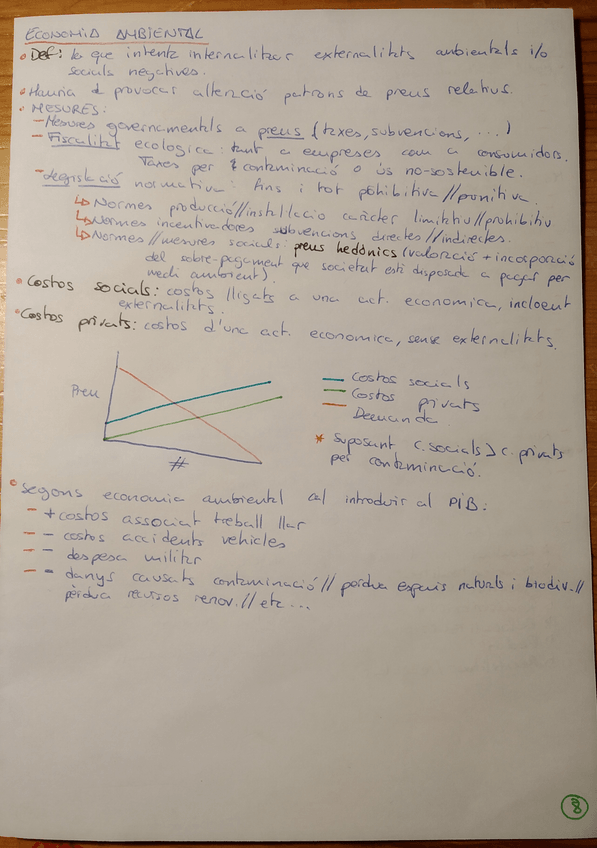 ECONOMIA AMBIENTAL
• Def: la que intenta internalitzar externalitats ambientals i/o
socials negatives.
• Hauria de provocar alteració patrons de preus relatius.
• MESURES:
- Mesures governamentals a preus (taxes, subvencions, ...)
- Fiscalitat ecologica: tant a empreses com a consumidors.
Taxes per contaminació o ús no-sostenible.
- Legislació normativa: fins i tot prohibitiva // punitiva.
↳ Normes producció // instal·lacio caràcter limitatiu // prohibitiu
↳ Normes incentivadores subvencions directes // indirectes.
↳ Normes // mesures socials: preus hedònics (valorzació + incorporació
del sobre-pagament que societat està disposada a pagar per
medi ambient).
• Costos socials: costos lligats a una act. economica, incloent
externalitats.
• Costos privats: costos d'una act. economica, sense externalitats.
Preu
#
Costos socials
Costos privats
Demanda
* Suposant C. socials > C. privats
per contaminació.
• Segons economia ambiental cal introduir al PIB:
- + costos associat treball llar
- - costos accidents vehicles
- - despesa militar
- - danys causats contaminació // pèrdua espais naturals i biodiv. //
pèrdua recursos renov. // etc...
8